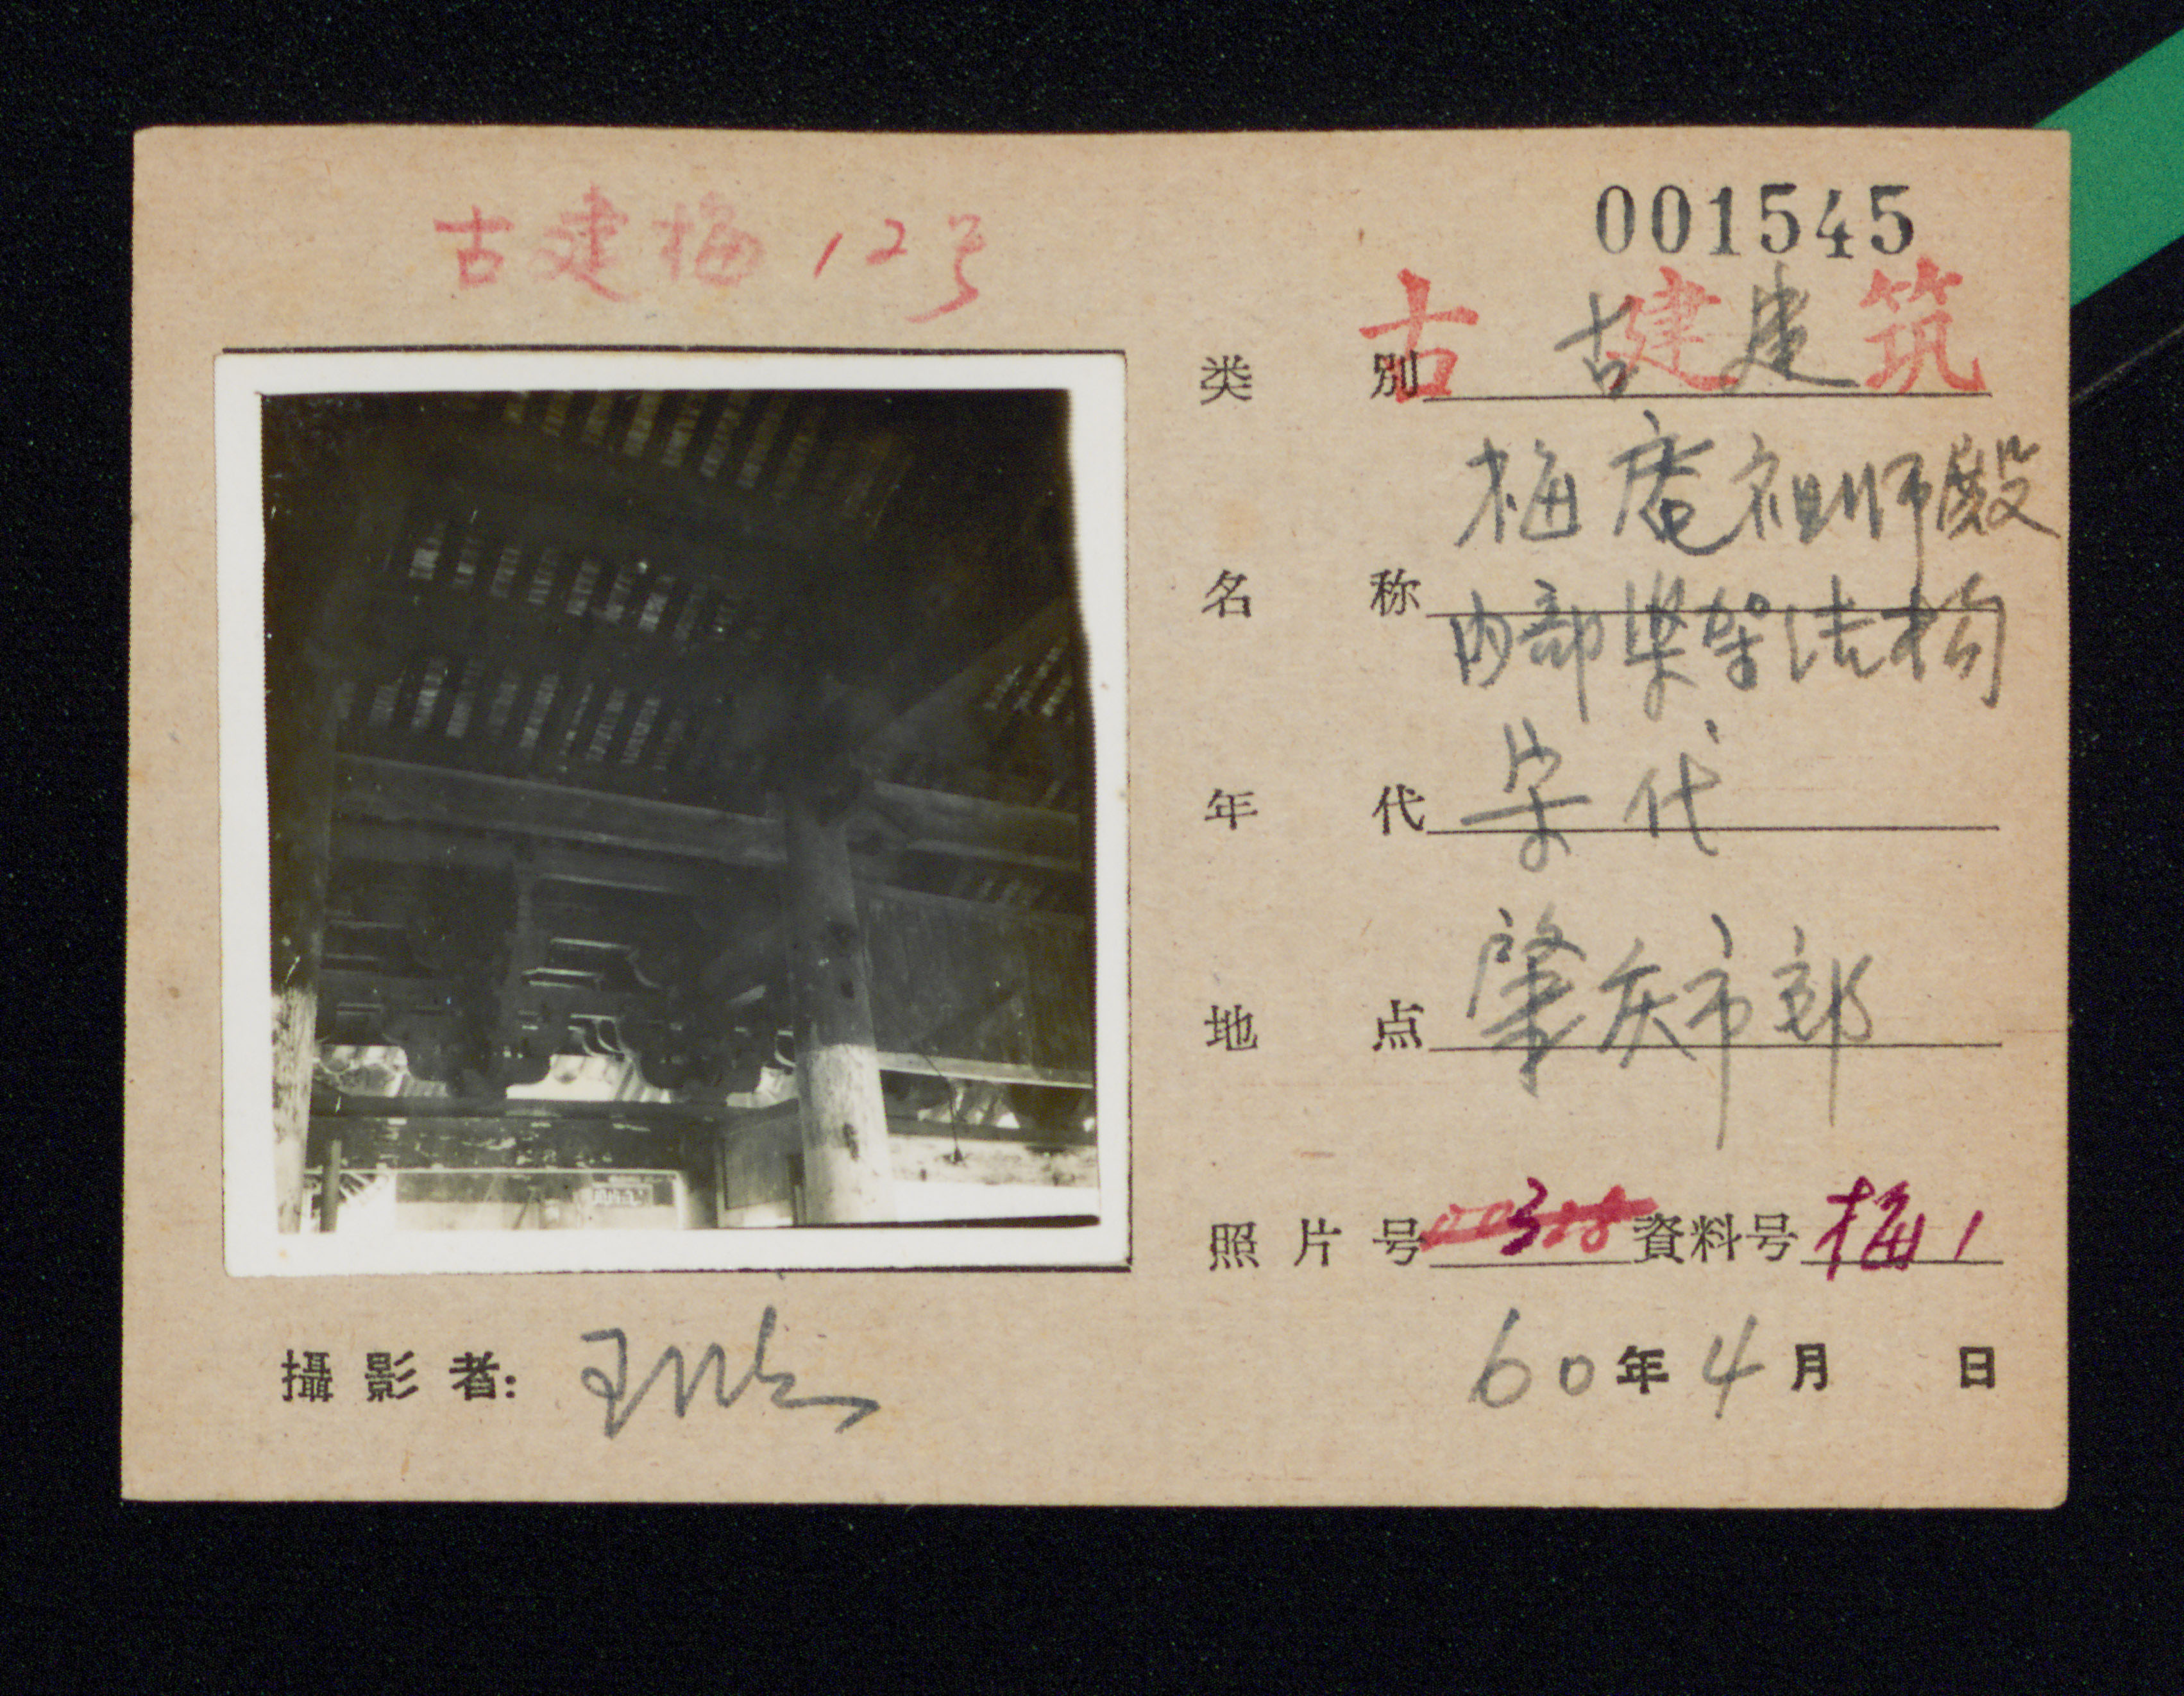 古建梅 12号
001545
古建筑
类別 古建
名称 梅庵祖师殿
内部梁架结构
年代 宋代
地点 肇庆市郊
照片号 3 資料号 梅1
攝影者:
60年4月 日